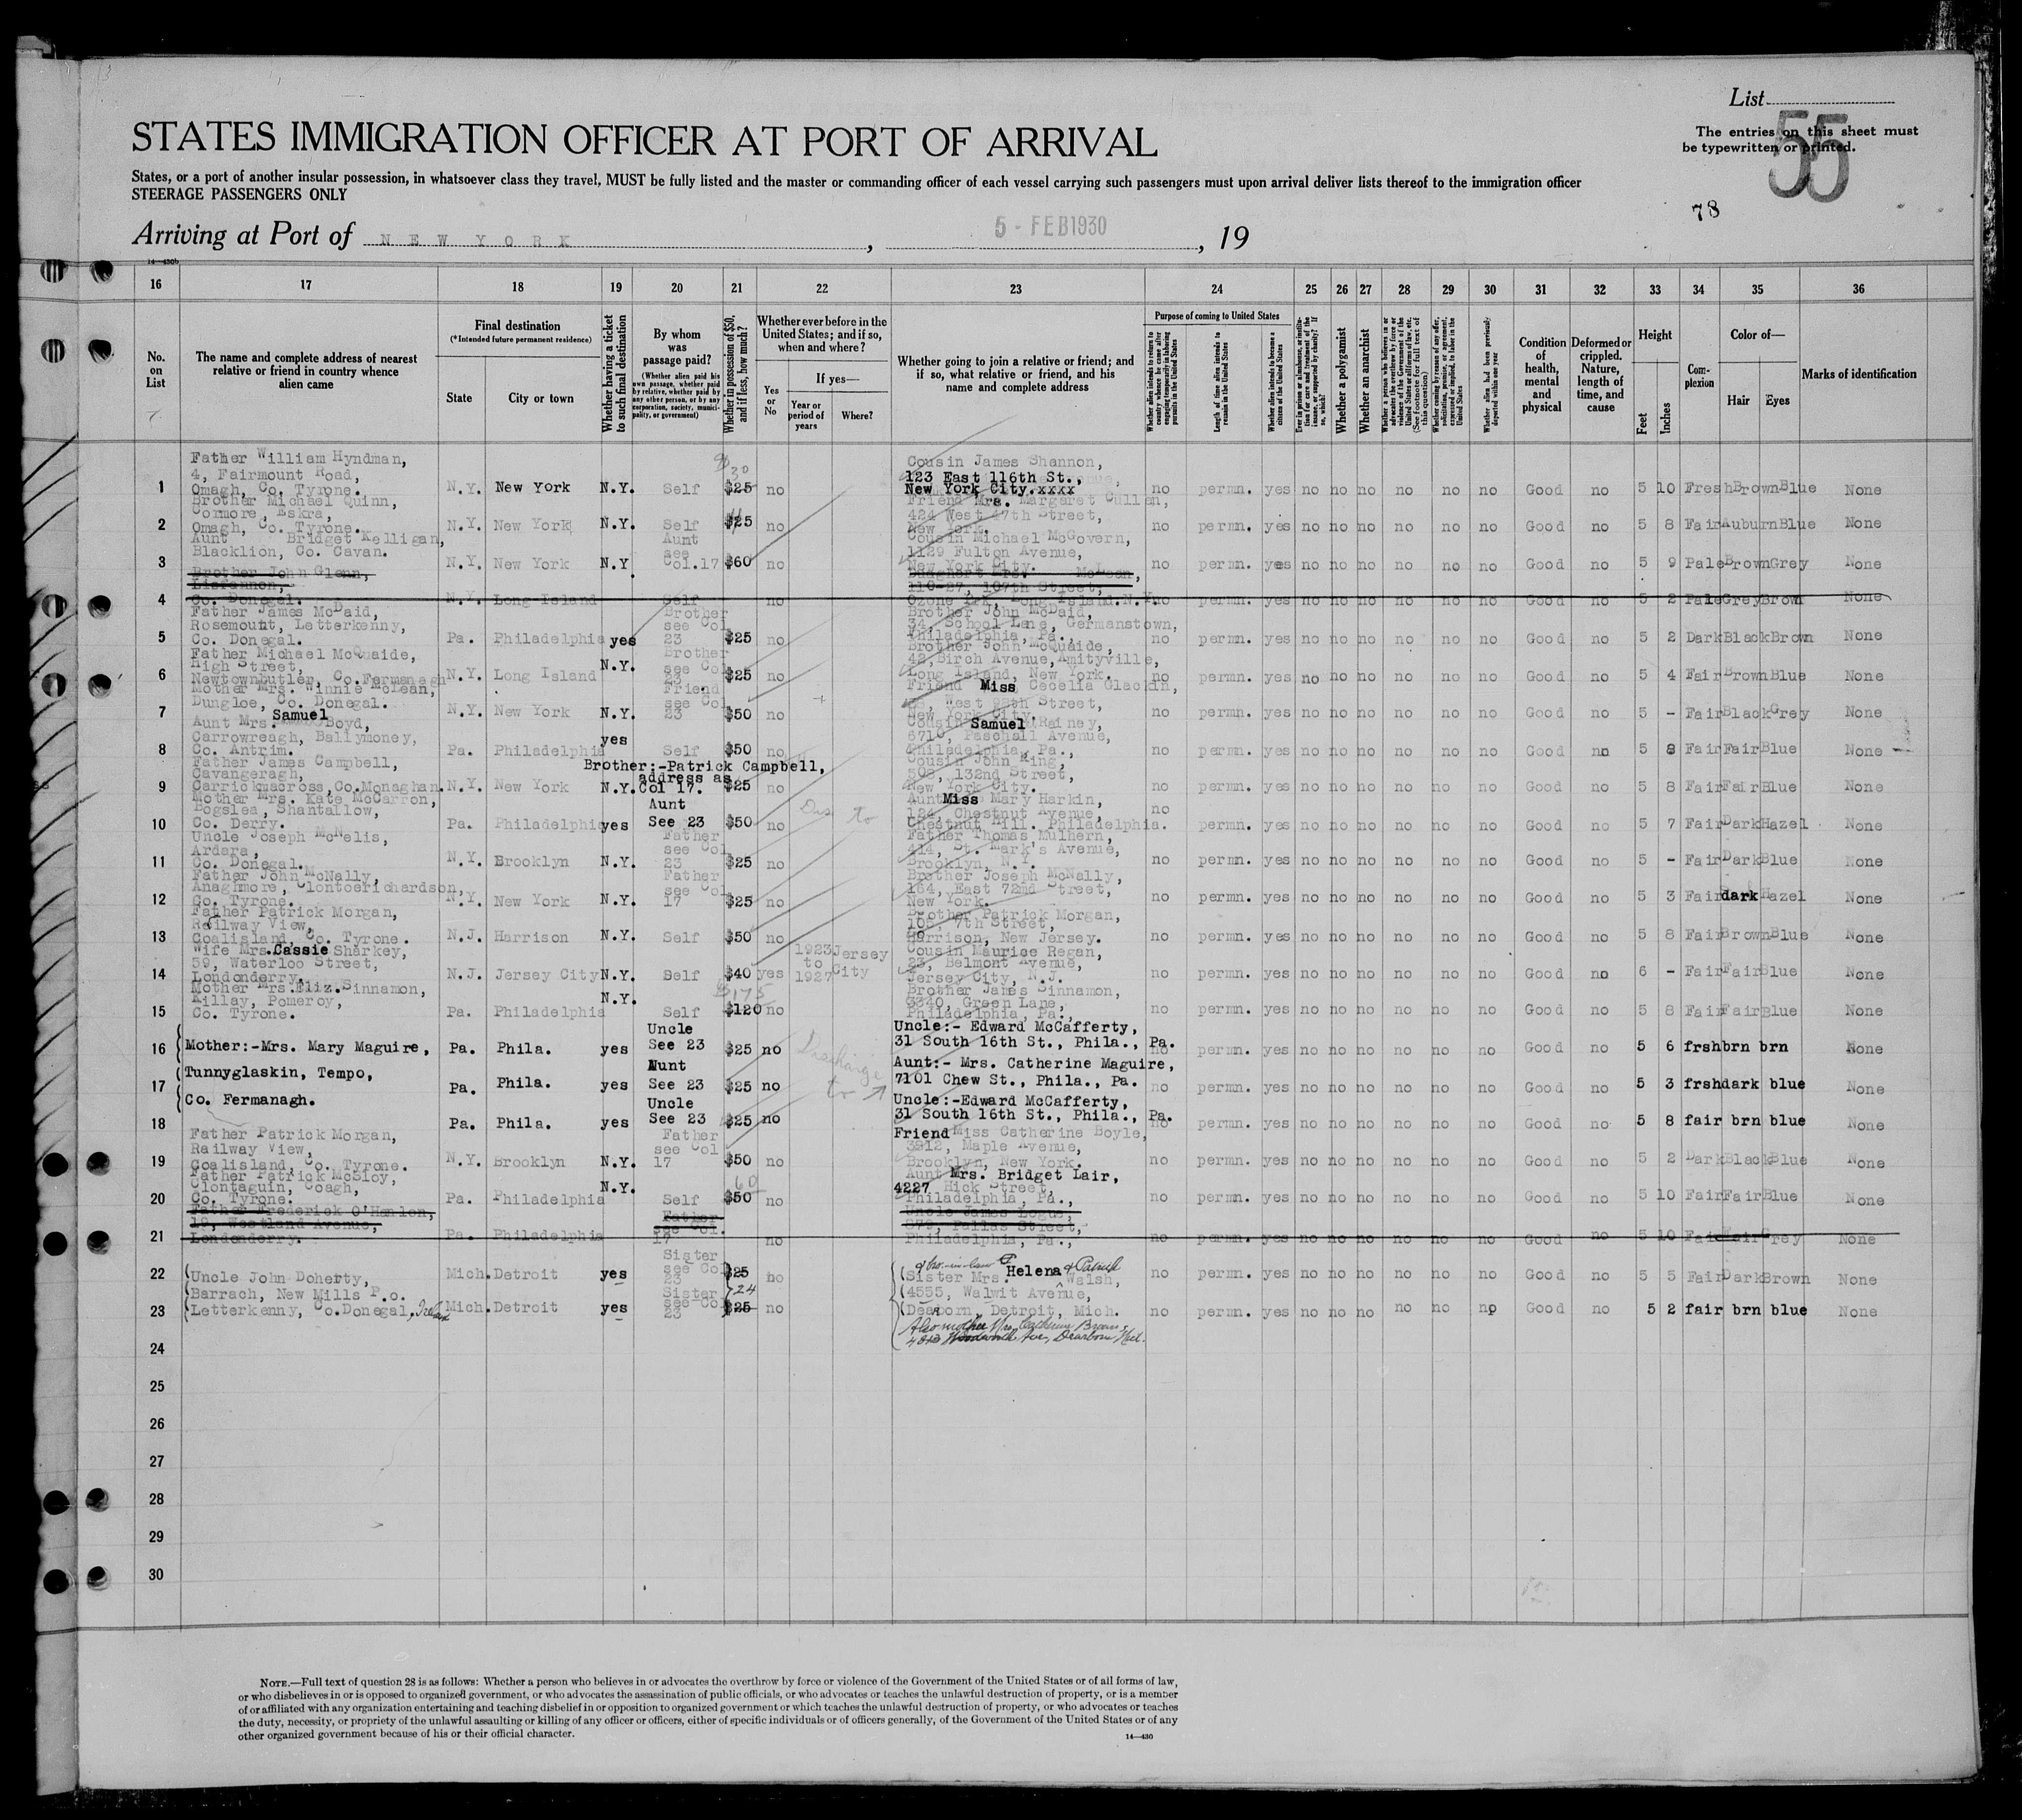 List
The entries on this sheet must
be typewritten or printed.
55
78
STATES IMMIGRATION OFFICER AT PORT OF ARRIVAL
States, or a port of another insular possession, in whatsoever class they travel, MUST be fully listed and the master or commanding officer of each vessel carrying such passengers must upon arrival deliver lists thereof to the immigration officer
STEERAGE PASSENGERS ONLY
Arriving at Port of NEW YORK, 5 - FEB 1930, 19
16 17 18 19 20 21 22 23 24 25 26 27 28 29 30 31 32 33 34 35 36
No. on List
The name and complete address of nearest relative or friend in country whence alien came
Final destination
(*Intended future permanent residence)
State
City or town
Whether having a ticket to such final destination
By whom was passage paid?
(Whether alien paid his own passage, whether paid by relative, whether paid by any other person, or by any corporation, society, municipality, or government)
Whether in possession of $50, and if less, how much?
Whether ever before in the United States; and if so, when and where?
Yes or No
If yes—
Year or period of years
Where?
Whether going to join a relative or friend; and if so, what relative or friend, and his name and complete address
Purpose of coming to United States
Length of time alien intends to remain in the United States
Whether alien intends to become a citizen of the United States
Whether a polygamist
Whether an anarchist
Condition of health, mental and physical
Deformed or crippled. Nature, length of time, and cause
Height
Feet
Inches
Complexion
Color of—
Hair
Eyes
Marks of identification
1 Father William Hyndman, 4, Fairmount Road, Omagh, Co. Tyrone. N.Y. New York N.Y. Self $25 30 no Cousin James Shannon, 123 East 116th St., New York City.xxxx no permn. yes no no no no no no Good no 5 10 Fresh Brown Blue None
2 Brother Michael Quinn, Cormore, Eskra, Omagh, Co. Tyrone. N.Y. New York N.Y. Self $25 no Friend Mrs. Margaret Cullen, 424 West 47th Street, New York. no permn. yes no no no no no no Good no 5 8 Fair Auburn Blue None
3 Aunt Bridget Kelligan, Blacklion, Co. Cavan. N.Y. New York N.Y Aunt see Col.17 $60 no Cousin Michael McGovern, 1129 Fulton Avenue, New York City. no permn. yes no no no no no no Good no 5 9 Pale Brown Grey None
4 Brother John Glenn, Co. Donegal. N.Y. Long Island Self no McLean, 110-27, 107th Street, Ozone Pk, Long Island.N.Y. no permn. yes no no no no no no Good no 5 2 Pale Grey Brown None
5 Father James McDaid, Rosemount, Letterkenny, Co. Donegal. Pa. Philadelphia yes Brother see Col 23 $25 no Brother John McDaid, 34, School Lane, Germanstown, Philadelphia, Pa., no permn. yes no no no no no no Good no 5 2 Dark Black Brown None
6 Father Michael McQuaide, High Street, Newtownbutler, Co.Fermanagh N.Y. Long Island N.Y. Brother see Col 23 $25 no Brother John McQuaide, 42, Birch Avenue, Amityville, Long Island, New York. no permn. yes no no no no no no Good no 5 4 Fair Brown Blue None
7 Mother Mrs. Winnie McLean, Dungloe, Co. Donegal. N.Y. New York N.Y. Friend see Col 23 $50 no Friend Miss Cecelia Glackin, West 88th Street, New York City. no permn. yes no no no no no no Good no 5 - Fair Black Grey None
8 Aunt Mrs. Samuel Boyd, Carrowreagh, Ballymoney, Co. Antrim. Pa. Philadelphia yes Self $50 no Cousin Samuel Rainey, 6710, Paschall Avenue, Philadelphia, Pa., no permn. yes no no no no no no Good no 5 8 Fair Fair Blue None
9 Father James Campbell, Cavangeragh, Carrickmacross, Co.Monaghan. N.Y. New York N.Y. Brother:-Patrick Campbell, address as Col 17. $25 no Cousin John King, 508, 132nd Street, New York City. no permn. yes no no no no no no Good no 5 8 Fair Fair Blue None
10 Mother Mrs. Kate McCarron, Bogslea, Shantallow, Co. Derry. Pa. Philadelphia yes Aunt See 23 $50 no Aunt Miss Mary Harkin, 124, Chestnut Avenue, Chestnut Hill. Philadelphia. no permn. yes no no no no no no Good no 5 7 Fair Dark Hazel None
11 Uncle Joseph McNelis, Ardara, Co. Donegal. N.Y. Brooklyn N.Y. Father see Col 23 $25 no Father Thomas Mulhern, 414, St. Mark's Avenue, Brooklyn, N.Y. no permn. yes no no no no no no Good no 5 - Fair Dark Blue None
12 Father John McNally, Anaghmore, Clontoerichardson, Co. Tyrone. N.Y. New York N.Y. Father see Col 17 $25 no Brother Joseph McNally, 164, East 72nd Street, New York. no permn. yes no no no no no no Good no 5 3 Fair dark Hazel None
13 Father Patrick Morgan, Railway View, Coalisland, Co. Tyrone. N.J. Harrison N.Y. Self $50 no Brother Patrick Morgan, 105, 7th Street, Harrison, New Jersey. no permn. yes no no no no no no Good no 5 8 Fair Brown Blue None
14 Wife Mrs. Cassie Sharkey, 59, Waterloo Street, Londonderry. N.J. Jersey City N.Y. Self $40 yes 1923 to 1927 Jersey City Cousin Maurice Regan, 23, Belmont Avenue, Jersey City, N.J. no permn. yes no no no no no no Good no 6 - Fair Fair Blue None
15 Mother Mrs.Eliz.Sinnamon, Killay, Pomeroy, Co. Tyrone. Pa. Philadelphia N.Y. Self $175 $120 no Brother James Sinnamon, 3340, Green Lane, Philadelphia, Pa., no permn. yes no no no no no no Good no 5 8 Fair Fair Blue None
16 Mother:-Mrs. Mary Maguire, Pa. Phila. yes Uncle See 23 $25 no Uncle:- Edward McCafferty, 31 South 16th St., Phila., Pa. no permn. yes no no no no no no Good no 5 6 frsh brn brn None
17 Tunnyglaskin, Tempo, Co. Fermanagh. Pa. Phila. yes Aunt See 23 $25 no Aunt:- Mrs. Catherine Maguire, 7101 Chew St., Phila., Pa. no permn. yes no no no no no no Good no 5 3 frsh dark blue None
18 Pa. Phila. yes Uncle See 23 $25 no Uncle:-Edward McCafferty, 31 South 16th St., Phila., Pa. no permn. yes no no no no no no Good no 5 8 fair brn blue None
19 Father Patrick Morgan, Railway View, Coalisland, Co. Tyrone. N.Y. Brooklyn N.Y. Father see Col 17 $50 no Friend Miss Catherine Boyle, 3912, Maple Avenue, Brooklyn, New York. no permn. yes no no no no no no Good no 5 2 Dark Black Blue None
20 Father Patrick McSloy, Clontaguin, Coagh, Co. Tyrone. Pa. Philadelphia N.Y. Self 60 $50 no Aunt Mrs. Bridget Lair, 4227 Hick Street, Philadelphia, Pa., no permn. yes no no no no no no Good no 5 10 Fair Fair Blue None
21 Father Frederick O'Hanlon, 19, Westland Avenue, Londonderry. Pa. Philadelphia Father see Col. 17 no Uncle James Logue, Dallas Street, Philadelphia, Pa., no permn. yes no no no no no no Good no 5 10 Fair Fair Grey None
22 Uncle John Doherty, Barrach, New Mills P.o. Mich. Detroit yes Sister see Col 23 $25 no & bro.-in-law Sister Mrs. Helena & Patrick Walsh, 4555, Walwit Avenue, no permn. yes no no no no no no Good no 5 5 Fair Dark Brown None
23 Letterkenny, Co.Donegal, Ireland Mich. Detroit yes Sister see Col 23 24 $25 no Deaborn, Detroit, Mich. no permn. yes no no no no no no Good no 5 2 fair brn blue None
Also mother Mrs. Catherine Brown,
Ave, Dearborn Mich.
24
25
26
27
28
29
30
NOTE.—Full text of question 28 is as follows: Whether a person who believes in or advocates the overthrow by force or violence of the Government of the United States or of all forms of law,
or who disbelieves in or is opposed to organized government, or who advocates the assassination of public officials, or who advocates or teaches the unlawful destruction of property, or is a member
of or affiliated with any organization entertaining and teaching disbelief in or opposition to organized government or which teaches the unlawful destruction of property, or who advocates or teaches
the duty, necessity, or propriety of the unlawful assaulting or killing of any officer or officers, either of specific individuals or of officers generally, of the Government of the United States or of any
other organized government because of his or their official character.
14—430